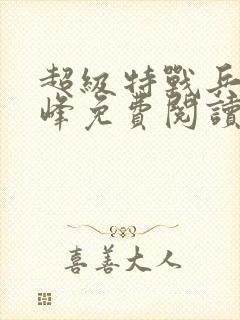 超級特戰兵
峰免費閱讀
喜善大人